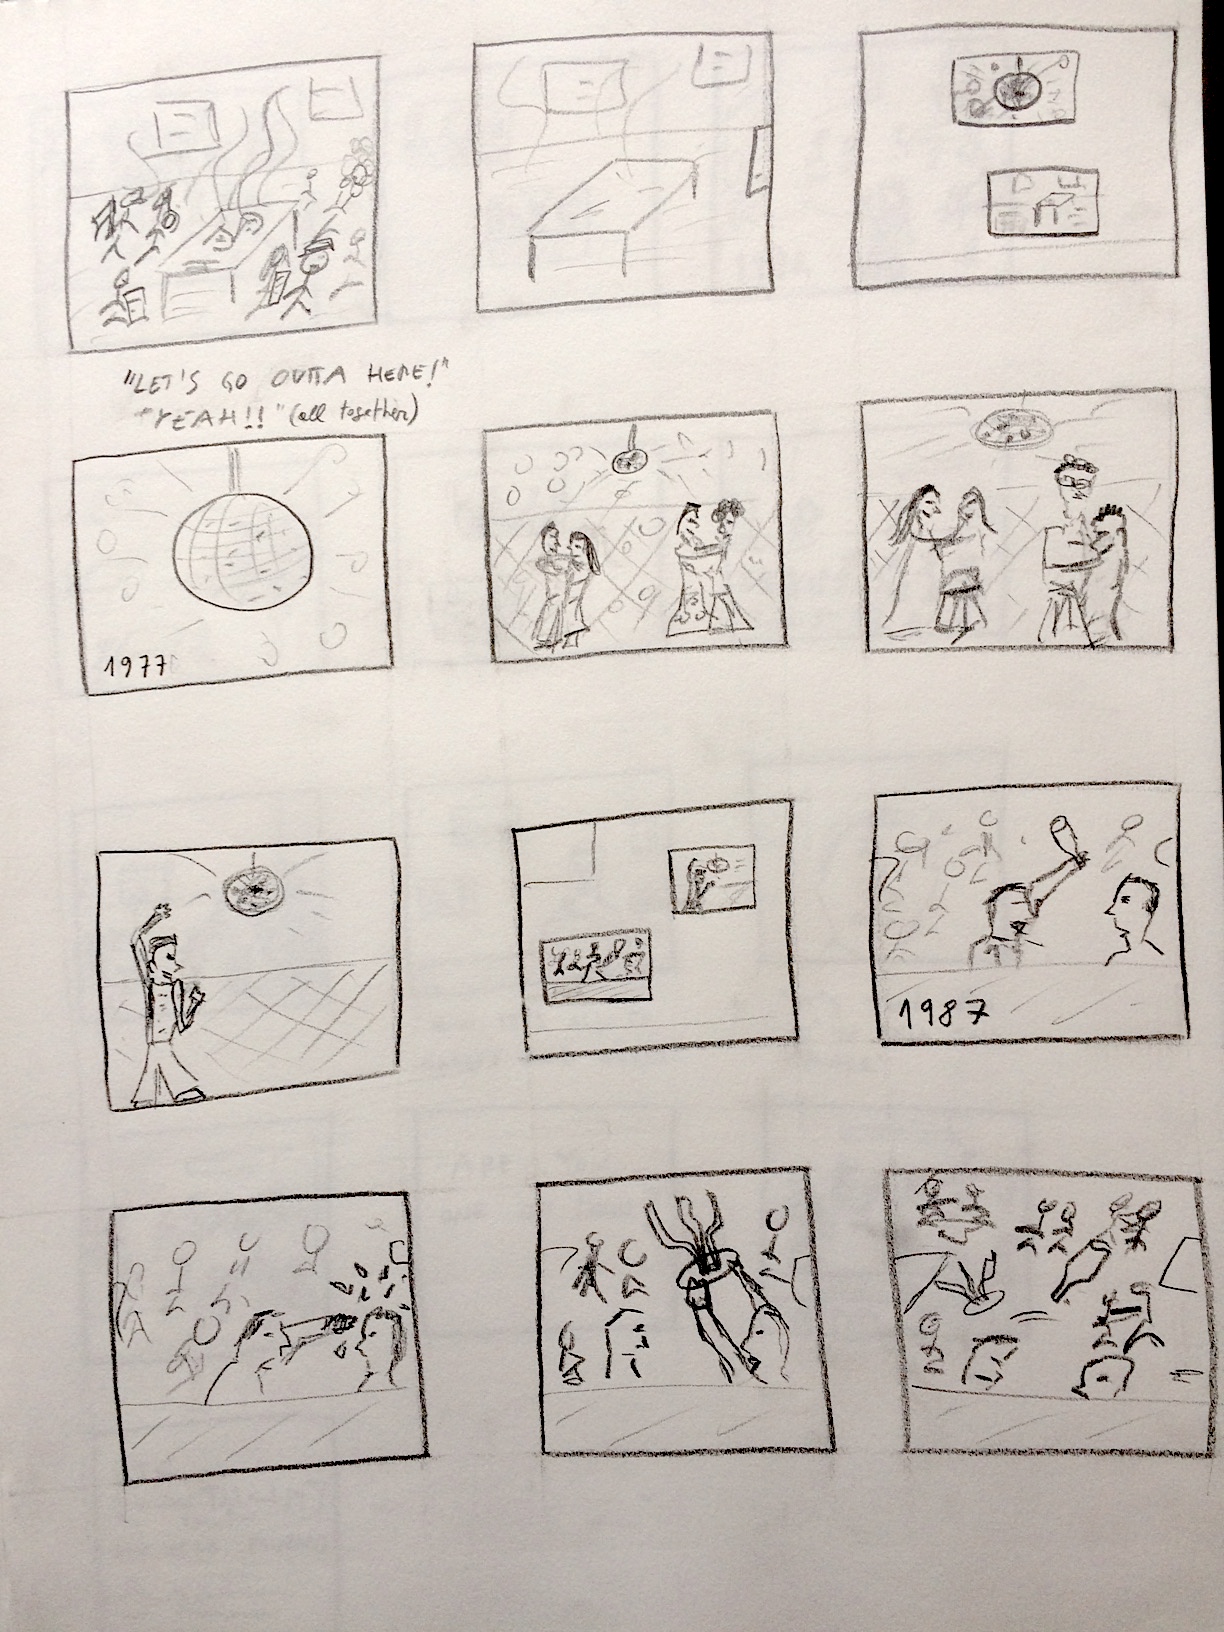 "LET'S GO OUTTA HERE!"
"YEAH!!" (all together)
1977
1987